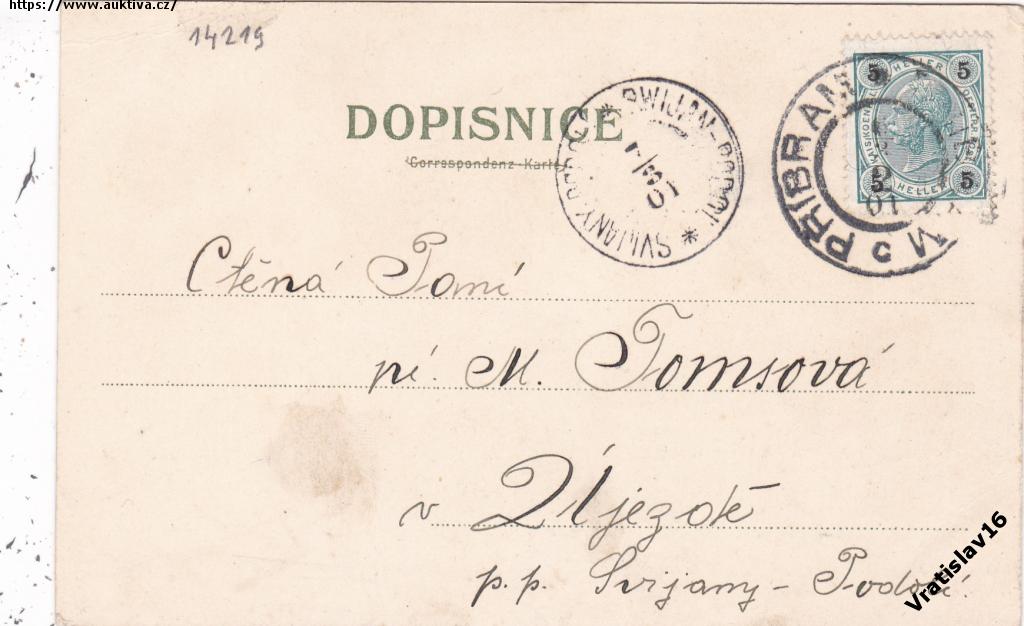 https://www.auktiva.cz/
14219
DOPISNICE
Correspondenz-Karte
SWIJAN-PODOL
SVIJANY
1/3
01
PŘÍBRAM
01
5 HELLER 5
5 HELLER 5
Ctěná Paní
pí. M. Tomsová
v Újezdě
p. p. Svijany - Podolí.
Vratislav16